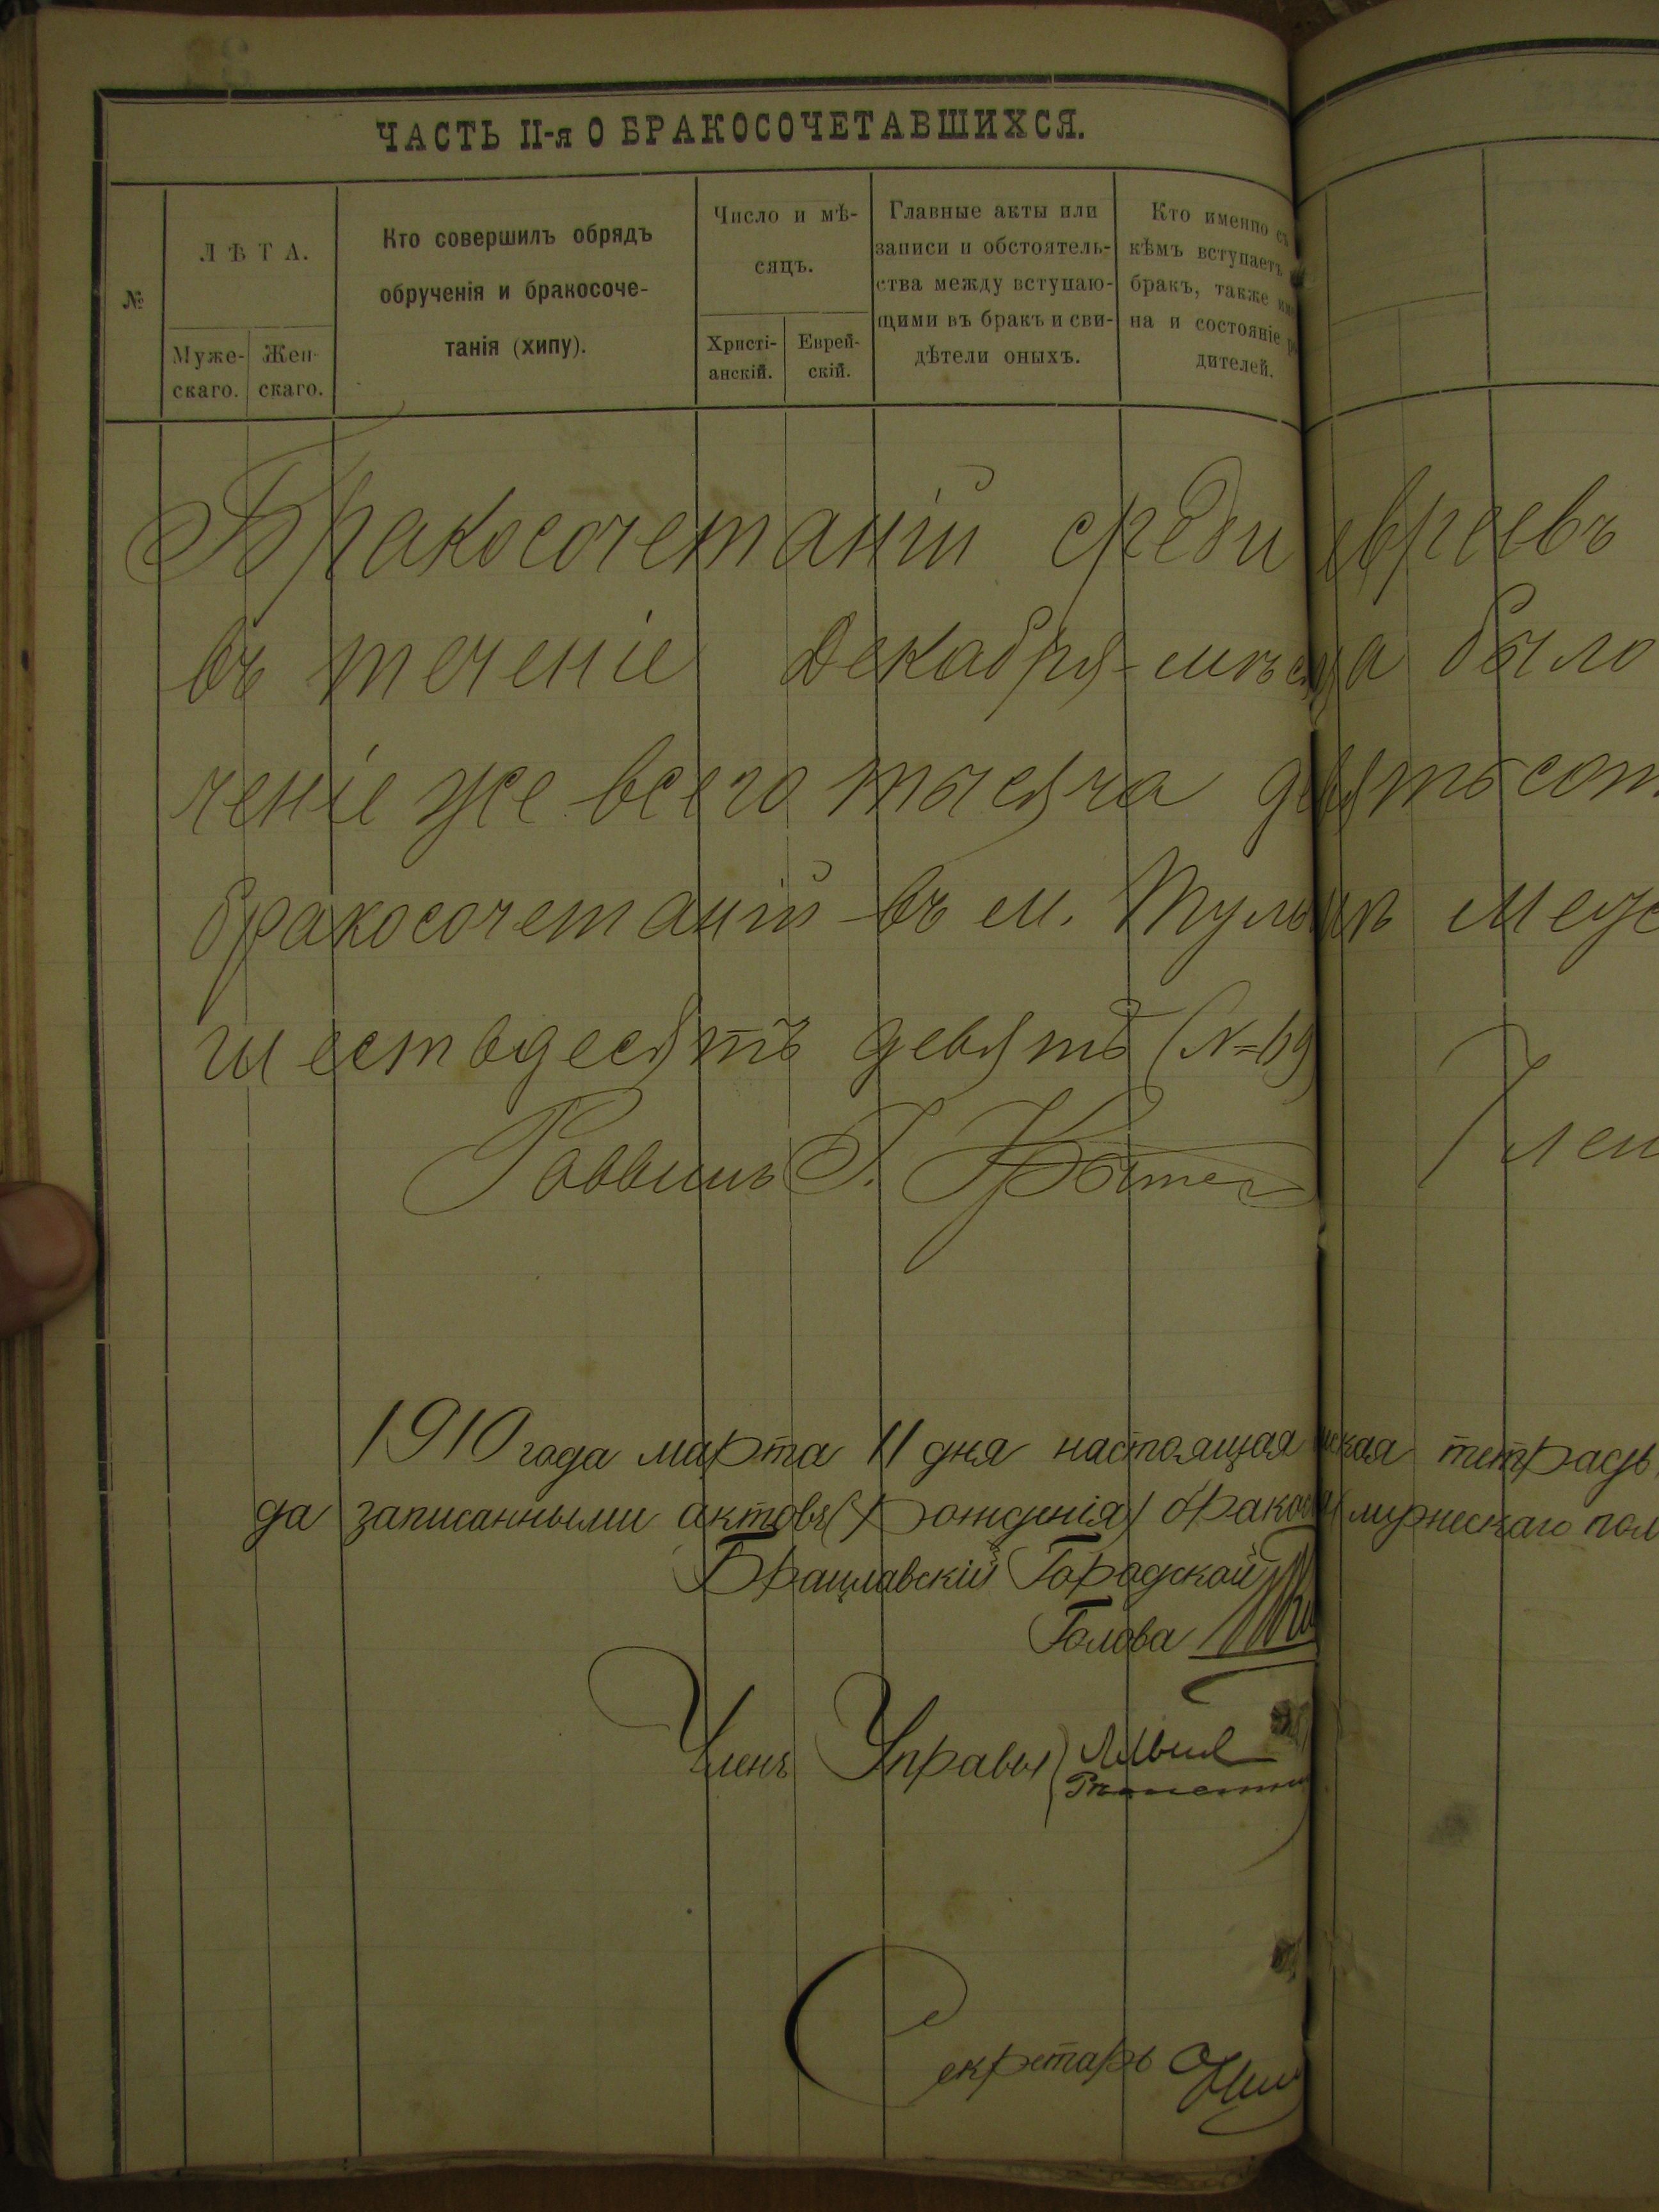 ЧАСТЬ II-я О БРАКОСОЧЕТАВШИХСЯ.
№
ЛѢТА.
Муже-
скаго.
Жен-
скаго.
Кто совершилъ обрядъ
обрученія и бракосоче-
танія (хипу).
Число и мѣ-
сяцъ.
Христі-
анскій.
Еврей-
скій.
Главные акты или
записи и обстоятель-
ства между вступаю-
щими въ бракъ и сви-
дѣтели оныхъ.
Кто именно съ
кѣмъ вступаетъ
бракъ, также
на и состояніе
дителей.
Бракосочетаній среди евреевъ
въ теченіе Декабря-мѣсяца было
ченіе же всего тысяча девятьсот
бракосочетаній въ м. Мес
шестьдесятъ девять (№69)
Раввинъ
1910 года марта 11 дня настоящая тетрадь
да записанными актовъ (рожденія)
Брацлавскій Городской
Голова
Членъ Управы
Секретарь